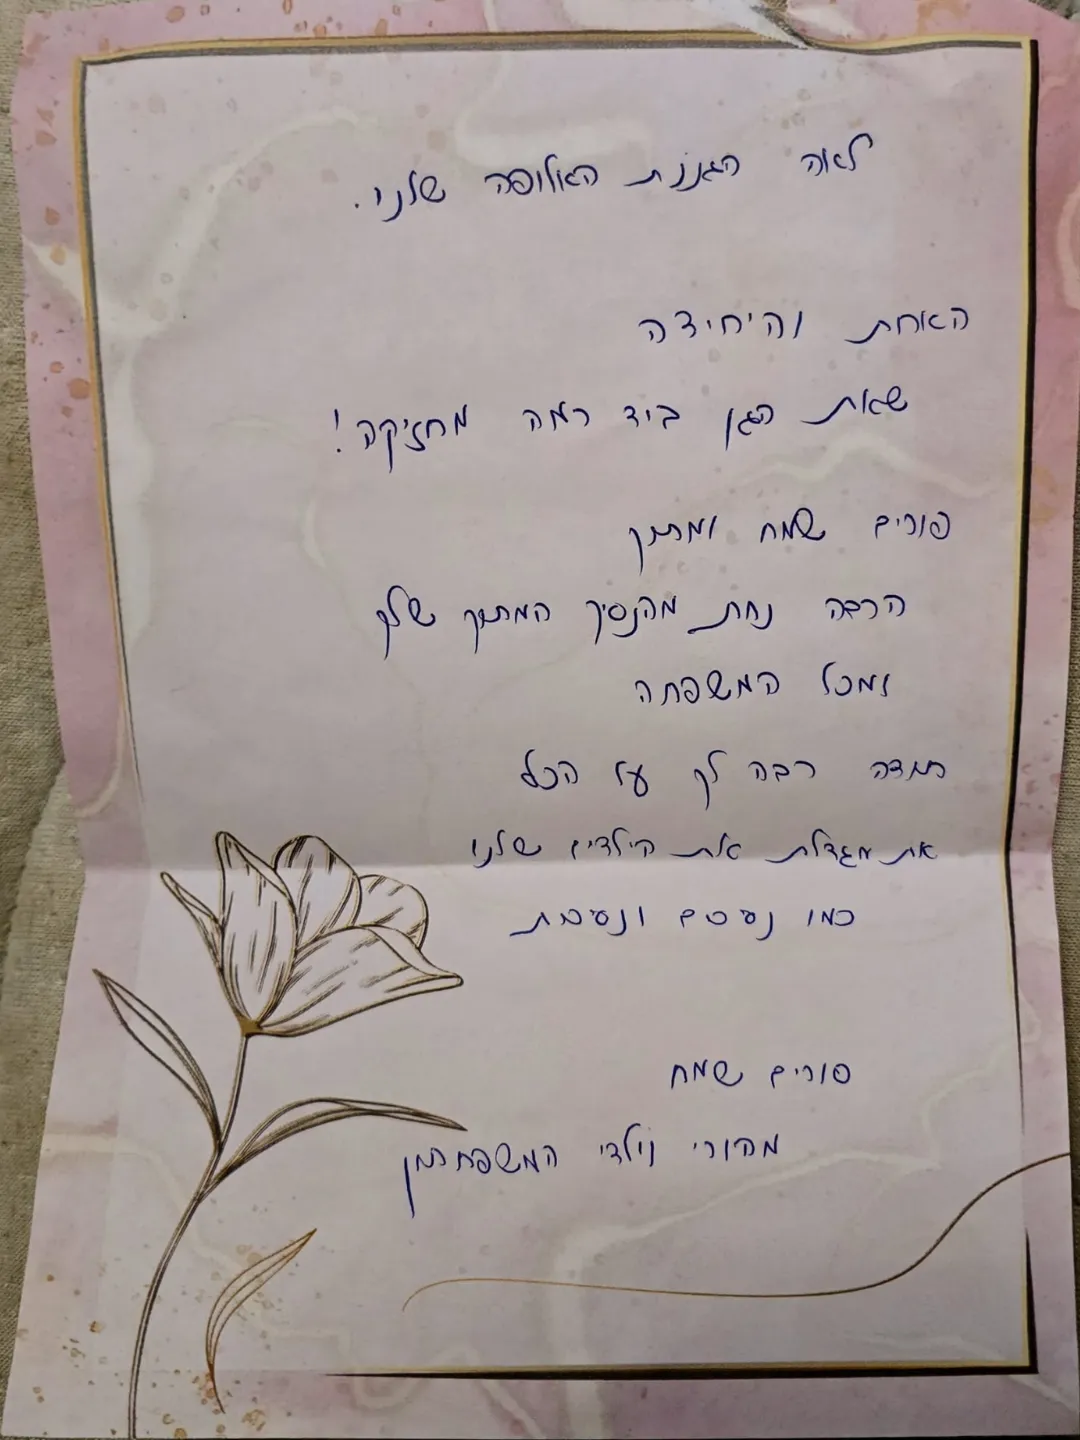 לאה הגננת האלופה שלנו.
האחת והיחידה
שאת הגן ביד רמה מחזיקה!
פורים שמח ומתוק
הרבה נחת מהנסיך המתוק שלך
ומכל המשפחה
תודה רבה לך על הכל
את מגדלת את הילדים שלנו
כמו נסיכים ונסיכות
פורים שמח
מהורי וילדי המשפחתון